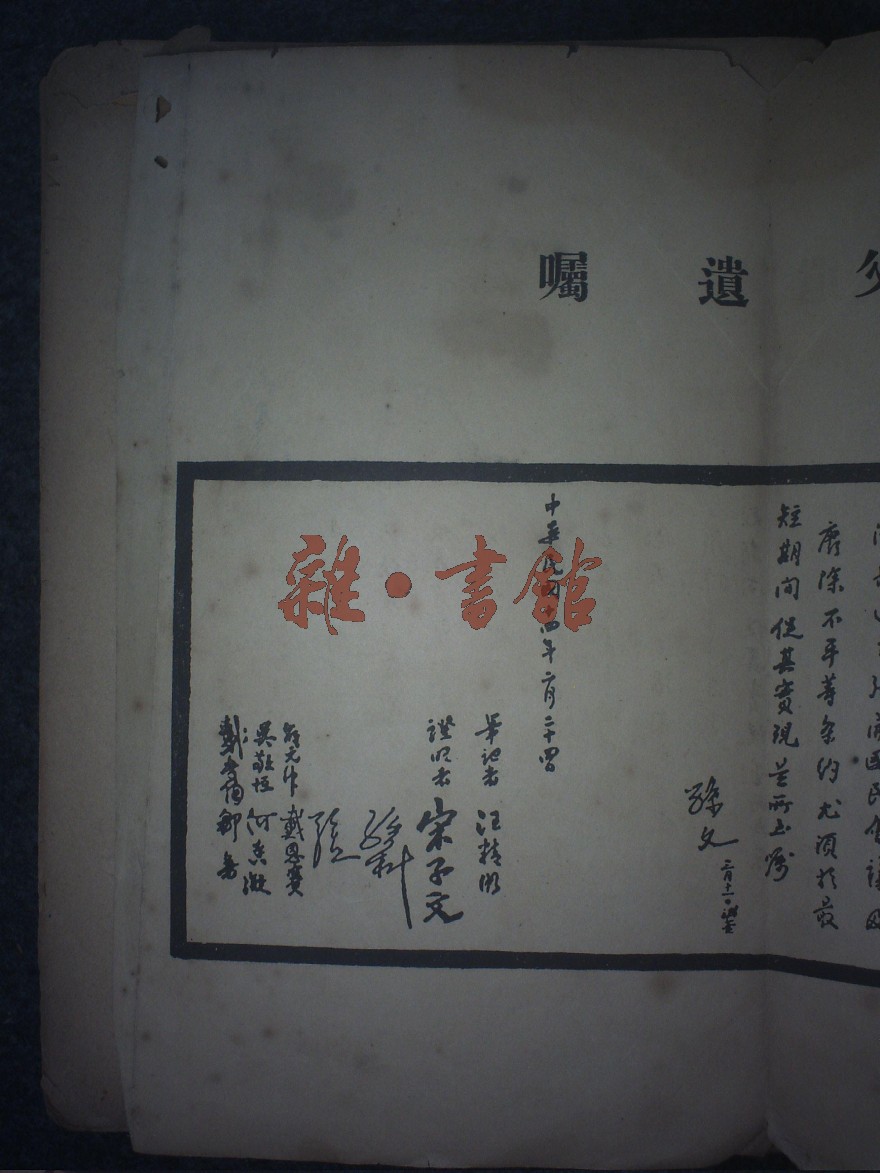 父遺囑
開國民會議
廢除不平等條約尤須於最
短期間促其實現是所至囑
孫文 三月十一日補簽
中華民國十四年二月二十四日
筆記者 汪精衛
證明者 宋子文
孫科
戴恩賽
吳敬恒 何香凝
戴季陶 鄒魯
雜·書館